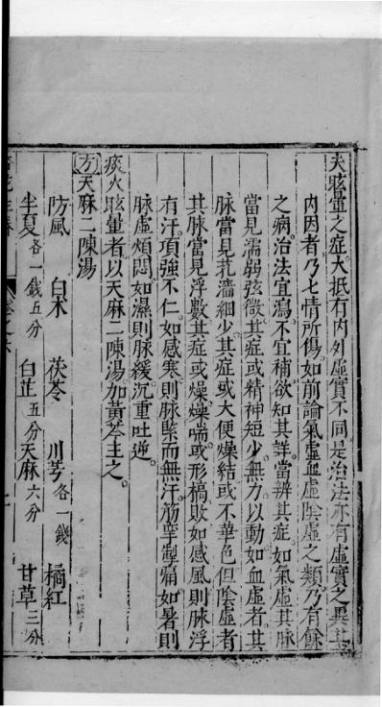 夫眩暈之症大抵有内外虛實不同是治法亦有虛實之異其
内因者乃七情所傷如前論氣虛血虛陰虛之類乃有餘
之病治法宜瀉不宜補欲知其詳當辨其症如氣虛其脉
當見濡弱弦微其症或精神短少無力以動如血虛者其
脉當見芤濇細少其症或大便燥結或不華色但陰虛者
其脉當見浮數其症或燥燥喘或形稿敗如感風則脉浮
有汗項強不仁如感寒則脉緊而無汗筋攣掣痛如暑則
脉虛煩悶如濕則脉緩沉重吐逆
痰火眩暈者以天麻二陳湯加黃芩主之
方天麻二陳湯
防風 白术 茯苓 川芎各一錢 橘紅
半夏各一錢五分 白芷五分天麻六分 甘草三分